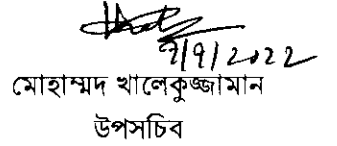 7/9/2022
মোহাম্মদ খালেকুজ্জামান
উপসচিব